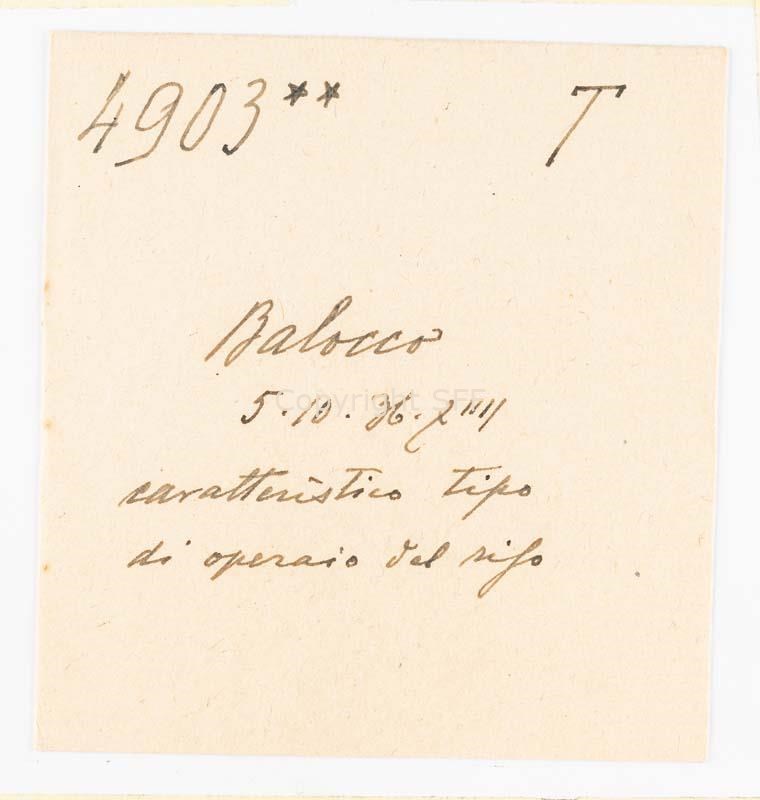 4903** T
Balocco
Copyright SFF
5.10.36.XIIII
caratteristico tipo
di operaio del riso